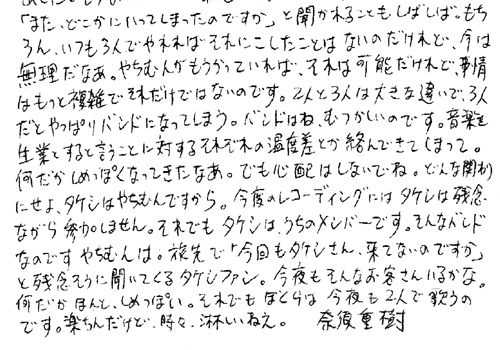 「また、どこかにいってしまったのですか」と聞かれることもしばしば。もち
ろん、いつも3人でやれればそれにこしたことはないのだけれど、今は
無理だなあ。やちむんがもうかっていれば、それは可能だけれど、事情
はもっと複雑でそれだけではないのです。2人と3人は大きな違いで、3人
だとやっぱりバンドになってしまう。バンドはね、むつかしいのです。音楽を
生業とすると言うことに対するそれぞれの温度差とか絡んできてしまって。
何だかしめっぽくなってきたなあ。でも心配はしないでね。どんな関わり
にせよ、タケシはやちむんですから。今度のレコーディングにはタケシは残念
ながら参加しません。それでもタケシは、うちのメンバーです。そんなバンド
なのですやちむんは。旅先で「今回もタケシさん、来てないのですか」
と残念そうに聞いてくるタケシファン。今夜もそんなお客さんいるかな。
何だかほんと、しめっぽい。それでもぼくらは今夜も2人で歌うの
です。楽ちんだけど、時々、淋しいねえ。 奈須重樹